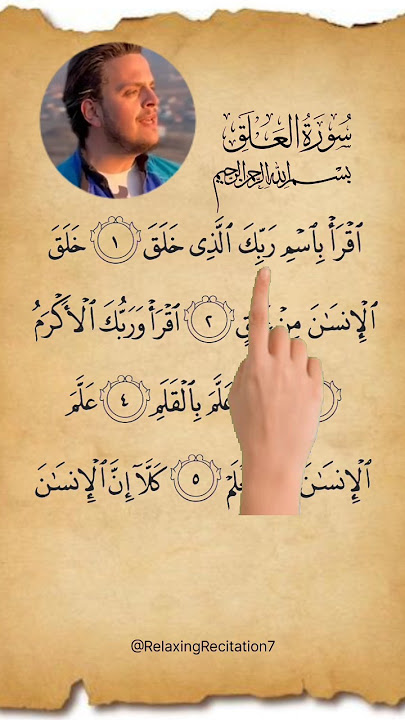 سُورَةُ العَلَق
بِسْمِ اللَّهِ الرَّحْمَٰنِ الرَّحِيمِ
ٱقۡرَأۡ بِٱسۡمِ رَبِّكَ ٱلَّذِى خَلَقَ ١ خَلَقَ
ٱلۡإِنسَٰنَ مِنۡ ٢ ٱقۡرَأۡ وَرَبُّكَ ٱلۡأَكۡرَمُ
عَلَّمَ بِٱلۡقَلَمِ ٤ عَلَّمَ
ٱلۡإِنسَٰنَ ٥ كَلَّآ إِنَّ ٱلۡإِنسَٰنَ
@RelaxingRecitation7